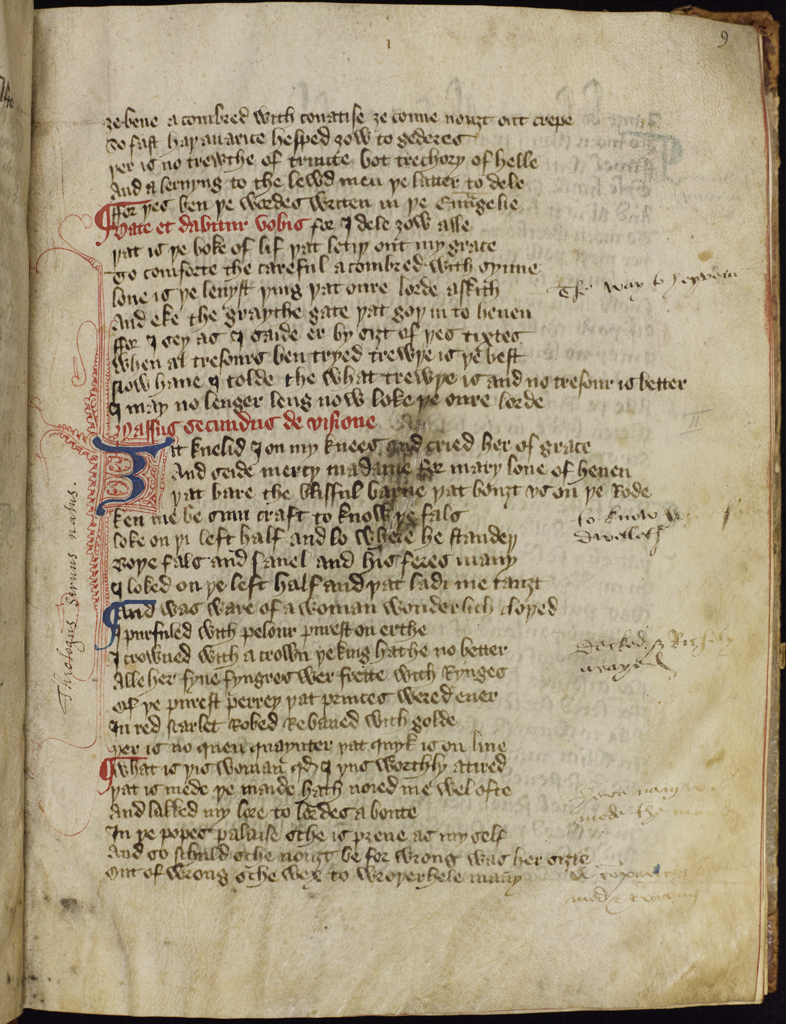 9
ȝe bene acombred with couatise ȝe conne nouȝt out crepe
So fast haþ auarice hesped ȝow to gederes
þer is no trewthe of trinite bot trechory of helle
And a lernyng to the lewd men þe latter to dele
ffor þes ben þe wordes writen in þe Euu̅gelie
Date et dabitur vobis for I dele ȝow alle
þat is þe boke of lif þat letiþ out my grace
To comforte the careful acombred with synne
loue is þe leuyst þing þat oure lorde askith
And eke the graythe gate þat goþ in to heuen
ffor I sey as I saide er by siȝt of þes tixtes
When al tresours ben tryed trewþe is þe best
Now haue I tolde the what trewþe is and no tresour is better
I may no lenger leng now loke þe oure lorde
Passus secundus de visione
Ȝit knelid I on my knees and cried her of grace
And seide mercy madame for mary loue of heuen
þat bare the blisful barne þat bouȝt vs on þe Rode
ken me be sum craft to know þe fals
loke on þi left half and lo where he standeþ
Boþe fals and fauel and his feres many
I loked on þe left half and þat ladi me tauȝt
And was ware of a woman wonderlich cloþed
I purfiled with pelour purest on erthe
I crowned with a crown þe king hathe no better
Alle her fyne fyngres wer frette with Rynges
Of þe purest perrey þat princes wered euer
In red scarlet Robed Rebaned with golde
þer is no quen quaynter þat quyk is on liue
What is þis woman qd I þus worthly atired
þat is mede þe maide hath noied me wel ofte
And lakked my lore to lordes aboute
In þe popes palaise sche is preue as my self
And so schuld sche nouȝt be for wrong was her sire
Out of wrong sche wex to wroþerhele many
The way to heyven
to know
Decked
arayed
made the
Theologus
natus.